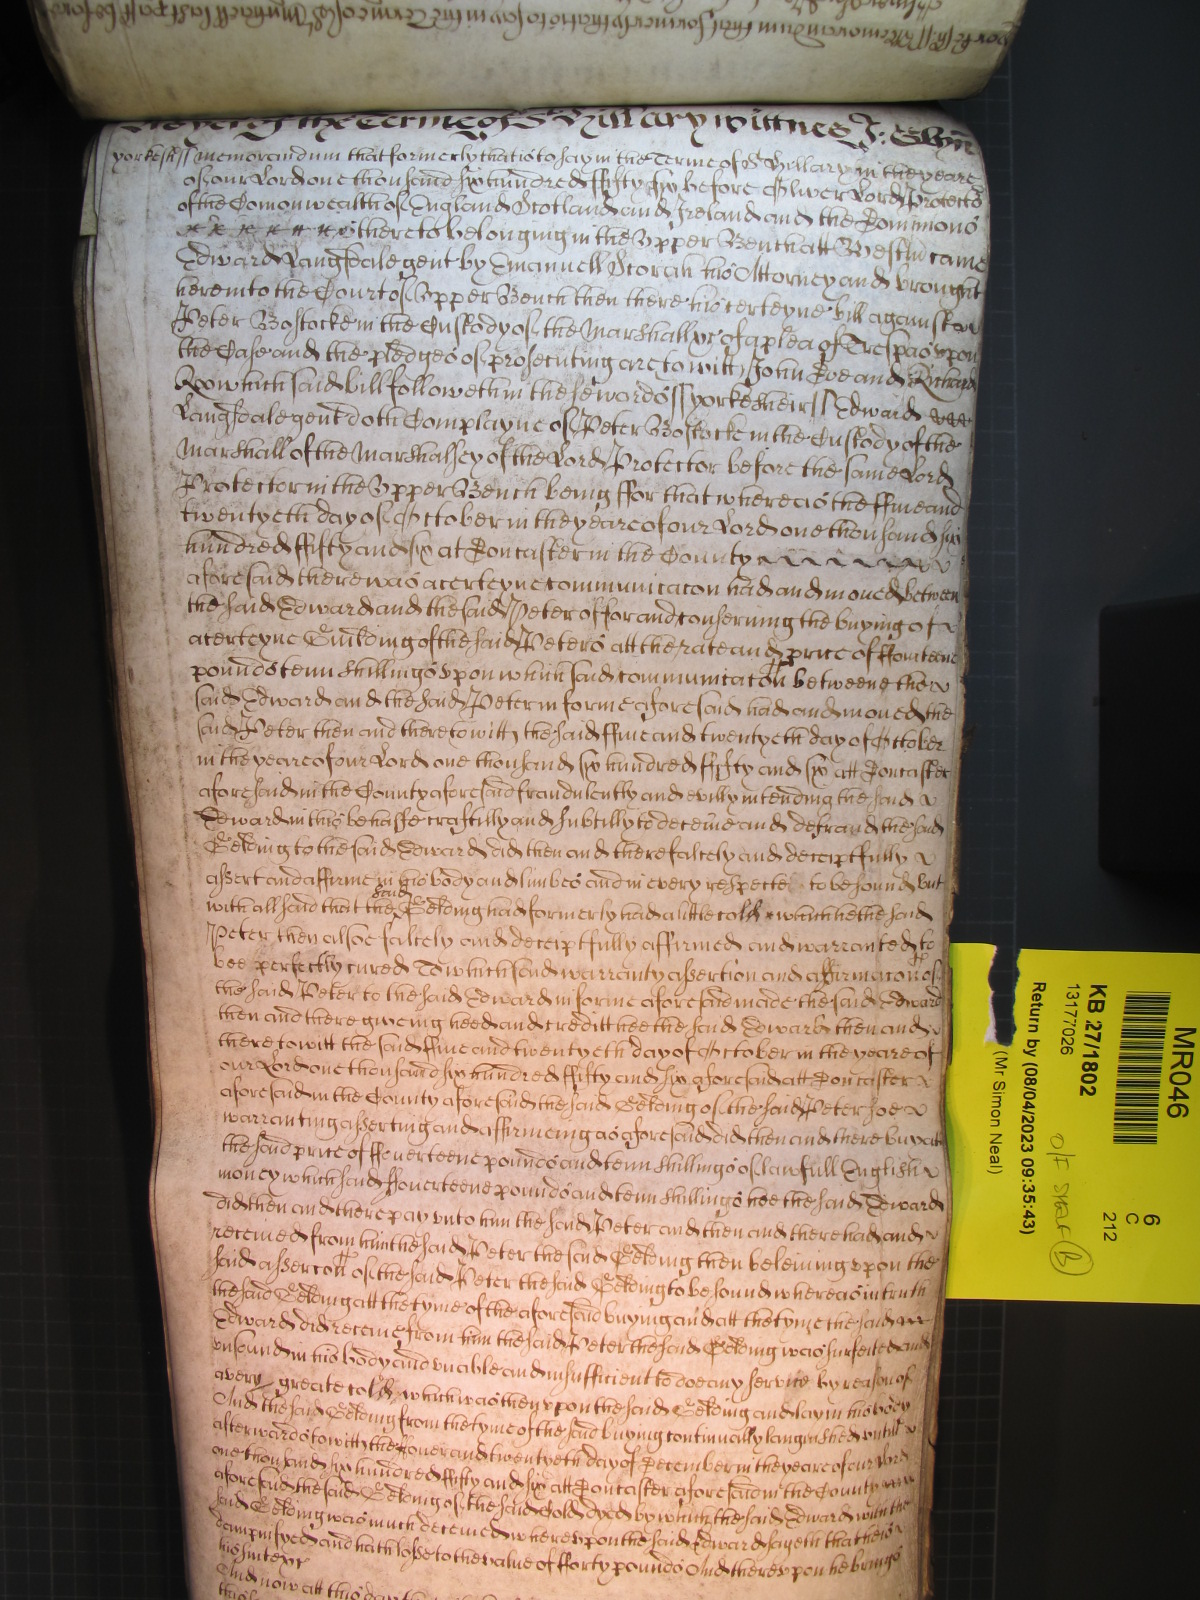 yet of the Terme of St Hillary wittnes J: Glyn
yorkesh ss memorandum that formerly that is to say in the Terme of St Hillary in the yeare
of our Lord one thousand six hundred ffifty six before Oliver Lord Protector
of the Comonwealth of England Scotland and Ireland and the Dominions
thereto belonging in the Vpper Bench att Westm came
Edward Langsdale gent by Emanuell his Attorney and brought
here into the Court of Vpper Bench then there his certeyne bill against
Peter Bostocke in the Custody of the Marshall &c of a plea of Trespas vpon
the Case and the pledges of prosecuting are to witt John Doe and Richard
Roo which said bill followeth in these words ss yorkesheir ss Edward
Langsdale gent doth Complayne of Peter Bostocke in the Custody of the
Marshall of the Marshalsey of the Lord Protector before the same Lord
Protector in the Vpper Bench being ffor that whereas the ffiue and
twentyeth day of October in the yeare of our Lord one thousand six
hundred ffifty and six at Doncaster in the County
aforesaid there was a certeyne communicacon had and moued between
the said Edward and the said Peter of for and conserning the buying of
a certeyne Guelding of the said Peters att the rate and price of ffourteene
pounds tenn shillings vpon which said communicacon betweene the
said Edward and the said Peter in forme aforesaid had and moued the
said Peter then and there to witt the said ffiue and twentyeth day of October
in the yeare of our Lord one thousand six hundred ffifty and six att Doncaster
aforesaid in the County aforesaid fraudulently and evilly intending the said
Edward in this behalfe craftilly and subtilly to deceiue and defraud the said
Gelding to the said Edward did then and there falcely and deceiptfully
assert and affirme in his body and limbes and in every respecte to be sound but
with all said that the said Gelding had formerly had a little cold which he the said
Peter then alsoe falcely and deceiptfully affirmed and warranted to
bee perfectly cured To which said warranty assertion and affirmacon of
the said Peter to the said Edward in forme aforesaid made the said Edward
then and there giveing heed and creditt hee the said Edward then and
there to witt the said ffiue and twentyeth day of October in the yeare of
our Lord one thousand six hundred ffifty and six aforesaid att Doncaster
aforesaid in the County aforesaid the said Gelding of the said Peter soe
warranting asserting and affirmeing as aforesaid did then and there buy att
the said price of ffouerteene pounds and tenn shillings of lawfull English
money which said ffouerteene pounds and tenn shillings hee the said Edward
did then and there pay vnto him the said Peter and then and there had and
received from him the said Peter the said Gelding then beleiuing vpon the
said assercon of the said Peter the said Gelding to be sound whereas in truth
the said Gelding att the tyme of the aforesaid buying and att the tyme the said
Edward did receiue from him the said Peter the said Gelding was surfeited and
vnsound in his body and vnable and insufficient to doe any service by reason of
a very greate cold which was then vpon the said Gelding and lay in his body
And the said Gelding from the tyme of the said buying continually languished vntill
afterwards to witt the ffouer and twentyeth day of December in the yeare of our Lord
one thousand six hundred ffifty and six att Doncaster aforesaid in the County
aforesaid the said Gelding of the said Cold dyed by which the said Edward with the
said Gelding was much deceiued wherevpon the said Edward sayeth that hee is
dampnifyed and hath losse to the value of fforty pounds And therevpon he brings
his suite &c
And now att this day that
MR046
6
C
212
KB 27/1802
13177026
O/S
B
Return by (08/04/2023 09:35:43)
(Mr Simon Neal)